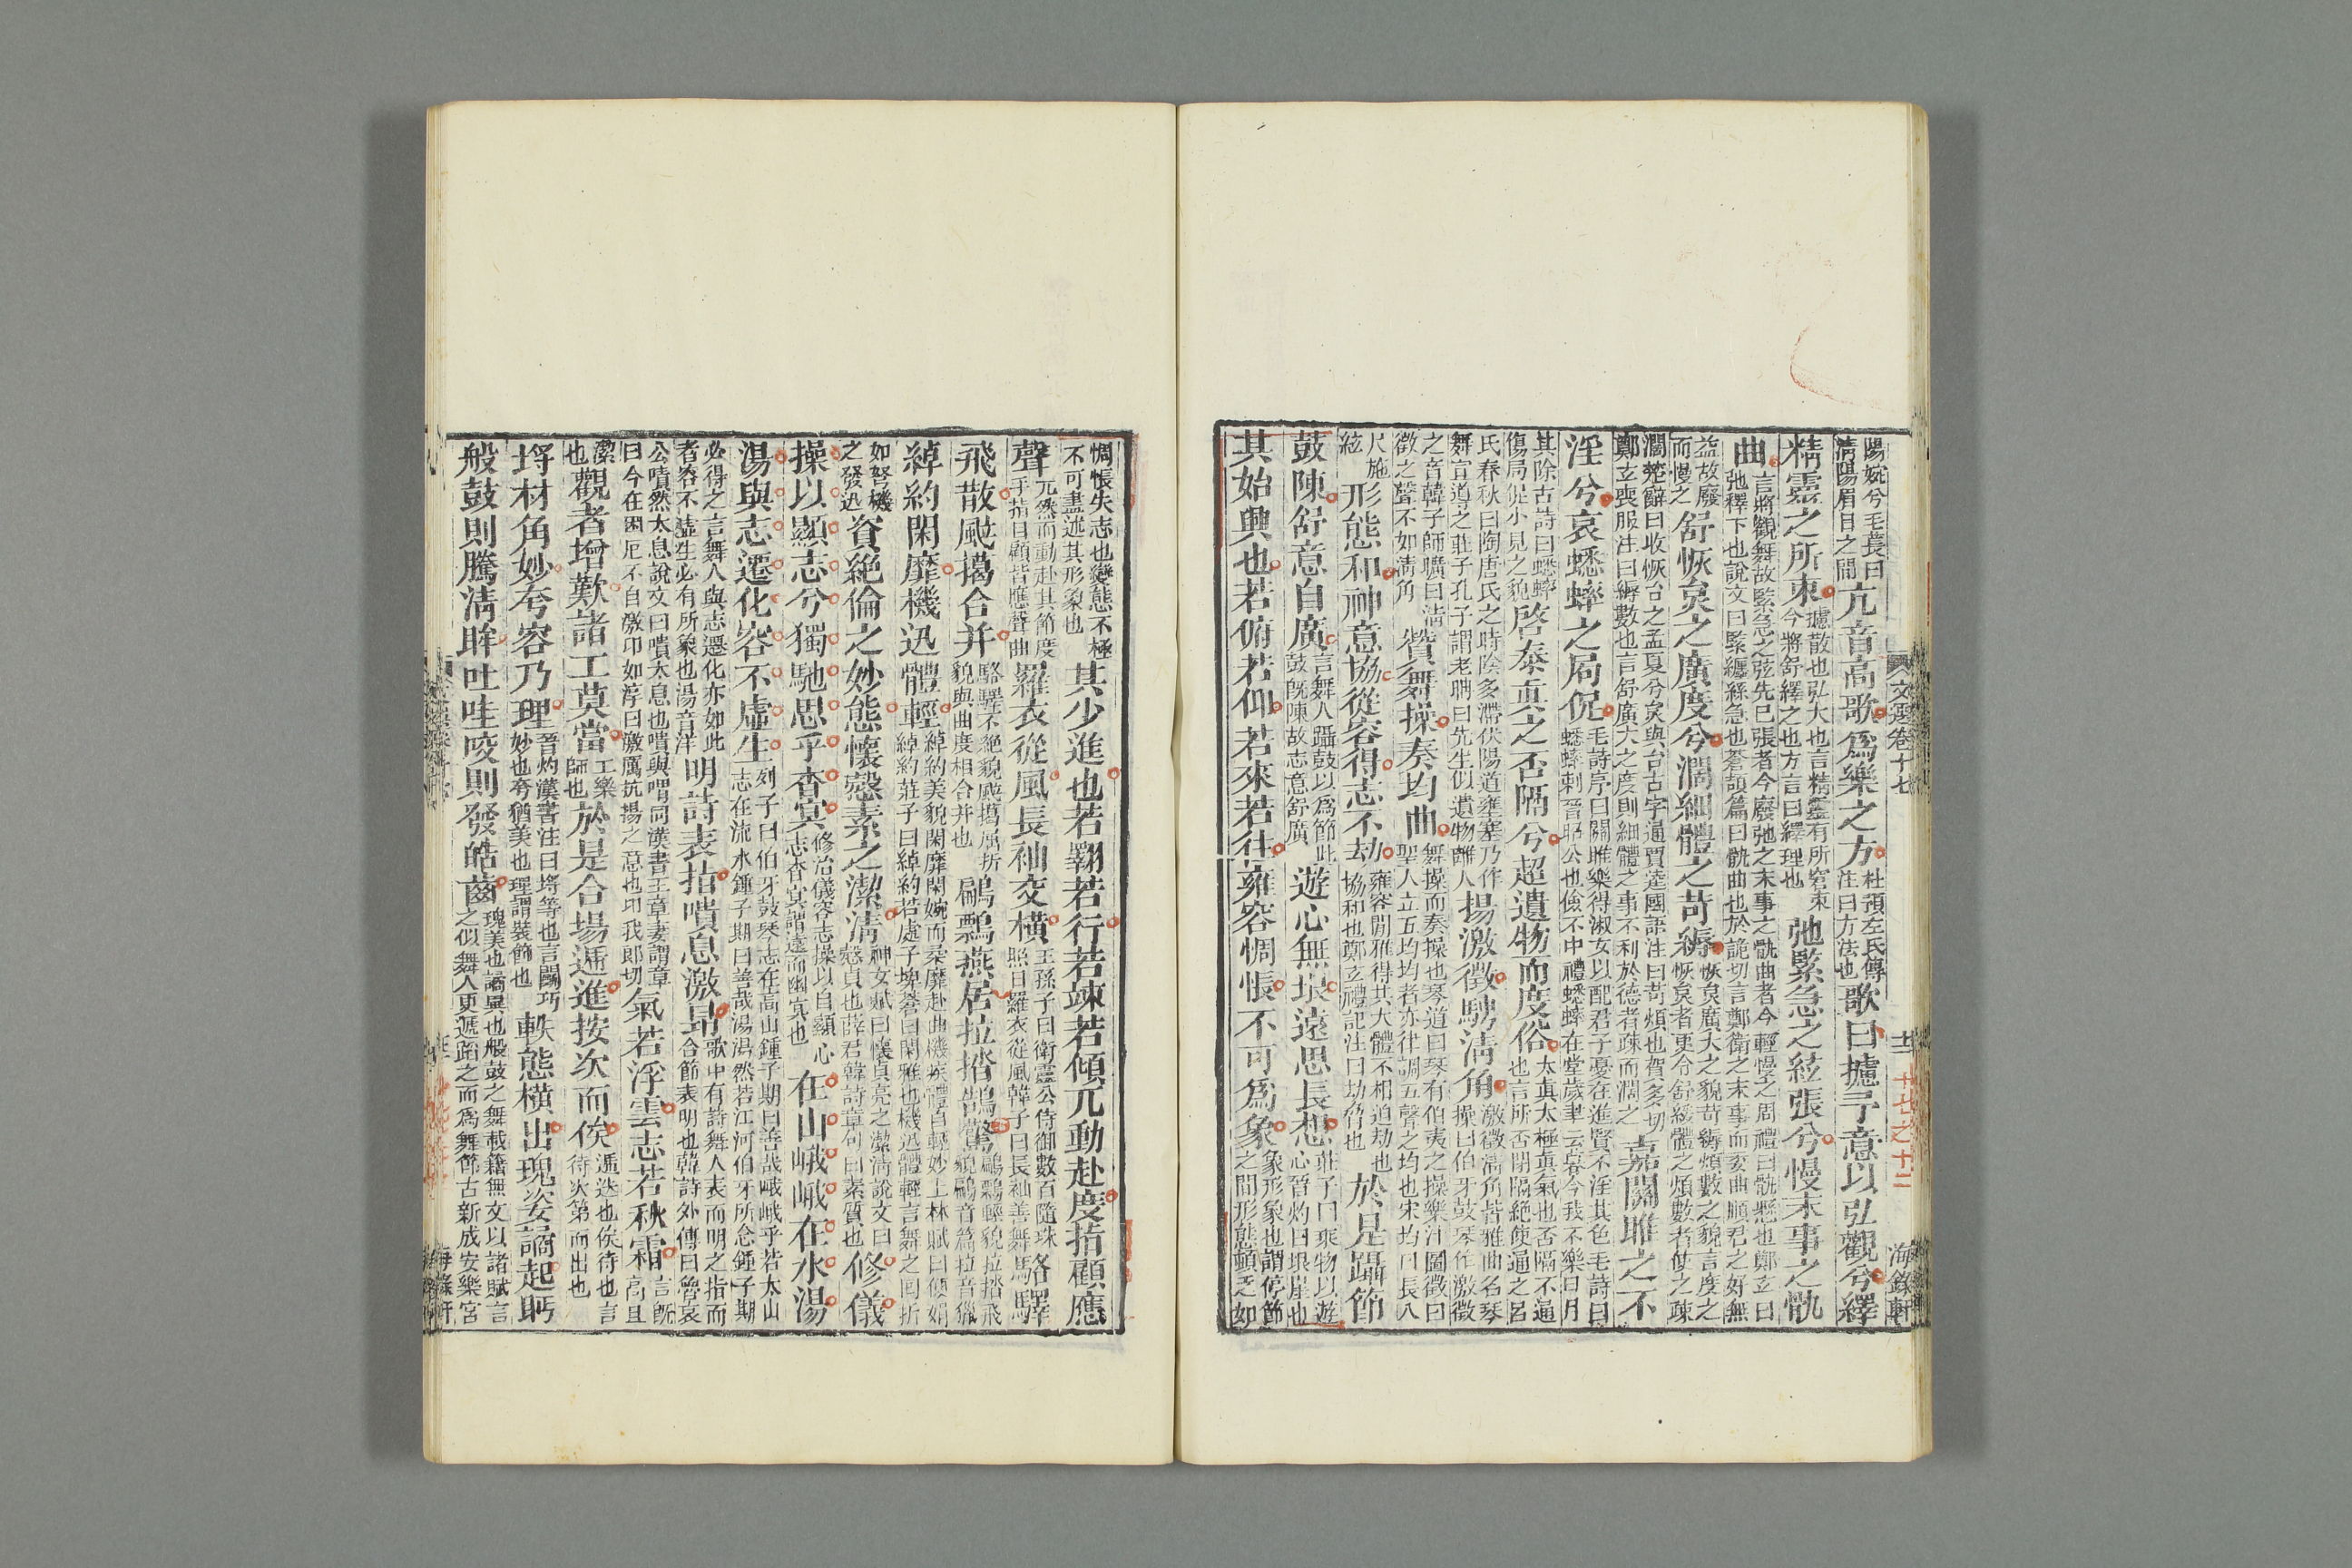 文選卷十七
十二
十七之十二
海錄軒
陽婉兮毛萇曰
清陽眉目之間
亢音高歌爲樂之方
杜預左氏傳
注曰方法也
歌曰攄予意以弘觀兮繹
精靈之所束
攄散也弘大也言精靈有所窘束
今將舒繹之也方言曰繹理也
弛緊急之絃張兮慢末事之骫
曲
言將觀舞故緊急之弦先已張者今廢弛之末事之骫曲者今輕慢之周禮曰骫懸也鄭玄曰
弛釋下也說文曰緊纏絲急也蒼頡篇曰骫曲也於詭切言鄭衛之末事而委曲順君之好無
益故廢
而慢之
舒恢炱之廣度兮濶細體之苛縟
恢炱廣大之貌苛縟煩數之貌言度之
恢炱者更令舒緩體之煩數者使之疎
濶楚辭曰收恢台之孟夏兮炱與台古字通賈逵國語注曰苛煩也賀多切
鄭玄喪服注曰縟數也言舒廣大之度則細體之事不利於德者疎而濶之
嘉關雎之不
淫兮哀蟋蟀之局促
毛詩序曰關雎樂得淑女以配君子憂在進賢不淫其色毛詩曰
蟋蟀刺晉昭公也儉不中禮蟋蟀在堂歲聿云暮今我不樂日月
其除古詩曰蟋蟀
傷局促小見之貌
啓泰眞之否隔兮超遺物而度俗
太眞太極眞氣也否隔不通
也言所否閉隔絶使通之呂
氏春秋曰陶唐氏之時陰多滯伏陽道壅塞乃作
舞宣導之莊子孔子謂老聃曰先生似遺物離人
揚激徵騁清角
激徵清角皆雅曲名琴
操曰伯牙鼓琴作激徵
之音韓子師曠曰清
徵之聲不如清角
贊舞操奏均曲
舞操而奏操也琴道曰琴有伯夷之操樂汁圖徵曰
聖人立五均均者亦律調五聲之均也宋均曰長八
尺施
絃
形態和神意協從容得志不劫
雍容閒雅得其大體不相迫劫也
協和也鄭玄禮記注曰劫脅也
於是躡節
鼓陳舒意自廣
言舞人躡鼓以爲節此
鼓旣陳故志意舒廣
遊心無垠遠思長想
莊子曰乘物以遊
心晉灼曰垠崖也
其始興也若俯若仰若來若往雍容惆悵不可爲象
象形象也謂停節
之間形態頓乏如
惆悵失志也變態不極
不可盡述其形象也
其少進也若翺若行若竦若傾兀動赴度指顧應
聲
兀然而動赴其節度
手指目顧皆應聲曲
羅衣從風長袖交橫
王孫子曰衛靈公侍御數百隨珠
照日羅衣從風韓子曰長袖善舞
駱驛
飛散颯擖合并
駱驛不絶貌颯擖屈折
貌與曲度相合并也
鶣𪅃燕居拉㧺鵠驚
鶣𪅃輕貌拉㧺飛
貌鶣音篇拉音獵
綽約閑靡機迅體輕
綽約美貌閑靡閑婉而柔靡赴曲機疾體自輕妙上林賦曰便娟
綽約莊子曰綽約若處子埤蒼曰閑雅也機迅體輕言舞之回折
如弩機
之發迅
資絶倫之妙態懷愨素之潔清
神女賦曰懷貞亮之潔清說文曰
愨貞也薛君韓詩章句曰素質也
修儀
操以顯志兮獨馳思乎杳冥
修治儀容志操以自顯心
志杳冥謂遠而幽寘也
在山峨峨在水湯
湯與志遷化容不虛生
列子曰伯牙鼓琴志在高山鍾子期曰善哉峨峨乎若太山
志在流水鍾子期曰善哉湯湯然若江河伯牙所念鍾子期
必得之言舞人與志遷化亦如此
者容不虛生必有所象也湯音洋
明詩表指嘳息激昂
歌中有詩舞人表而明之指而
合節表明也韓詩外傳曰魯哀
公嘳然太息說文曰嘳太息也嘳與喟同漢書王章妻謂章
曰今在困厄不自激卬如淳曰激厲抗揚之意也卬我郎切
氣若浮雲志若秋霜
言旣
高且
潔
也
觀者增歎諸工莫當
工樂
師也
於是合場遞進按次而俟
遞迭也俟待也言
待次第而出也
埒材角妙夸容乃理
晉灼漢書注曰埒等也言鬬巧
妙也夸猶美也理謂裝飾也
軼態橫出瑰姿譎起眄
般鼓則騰清眸吐哇咬則發皓齒
瑰美也譎異也般鼓之舞載籍無文以諸賦言
之似舞人更遞蹈之而爲舞節古新成安樂宮